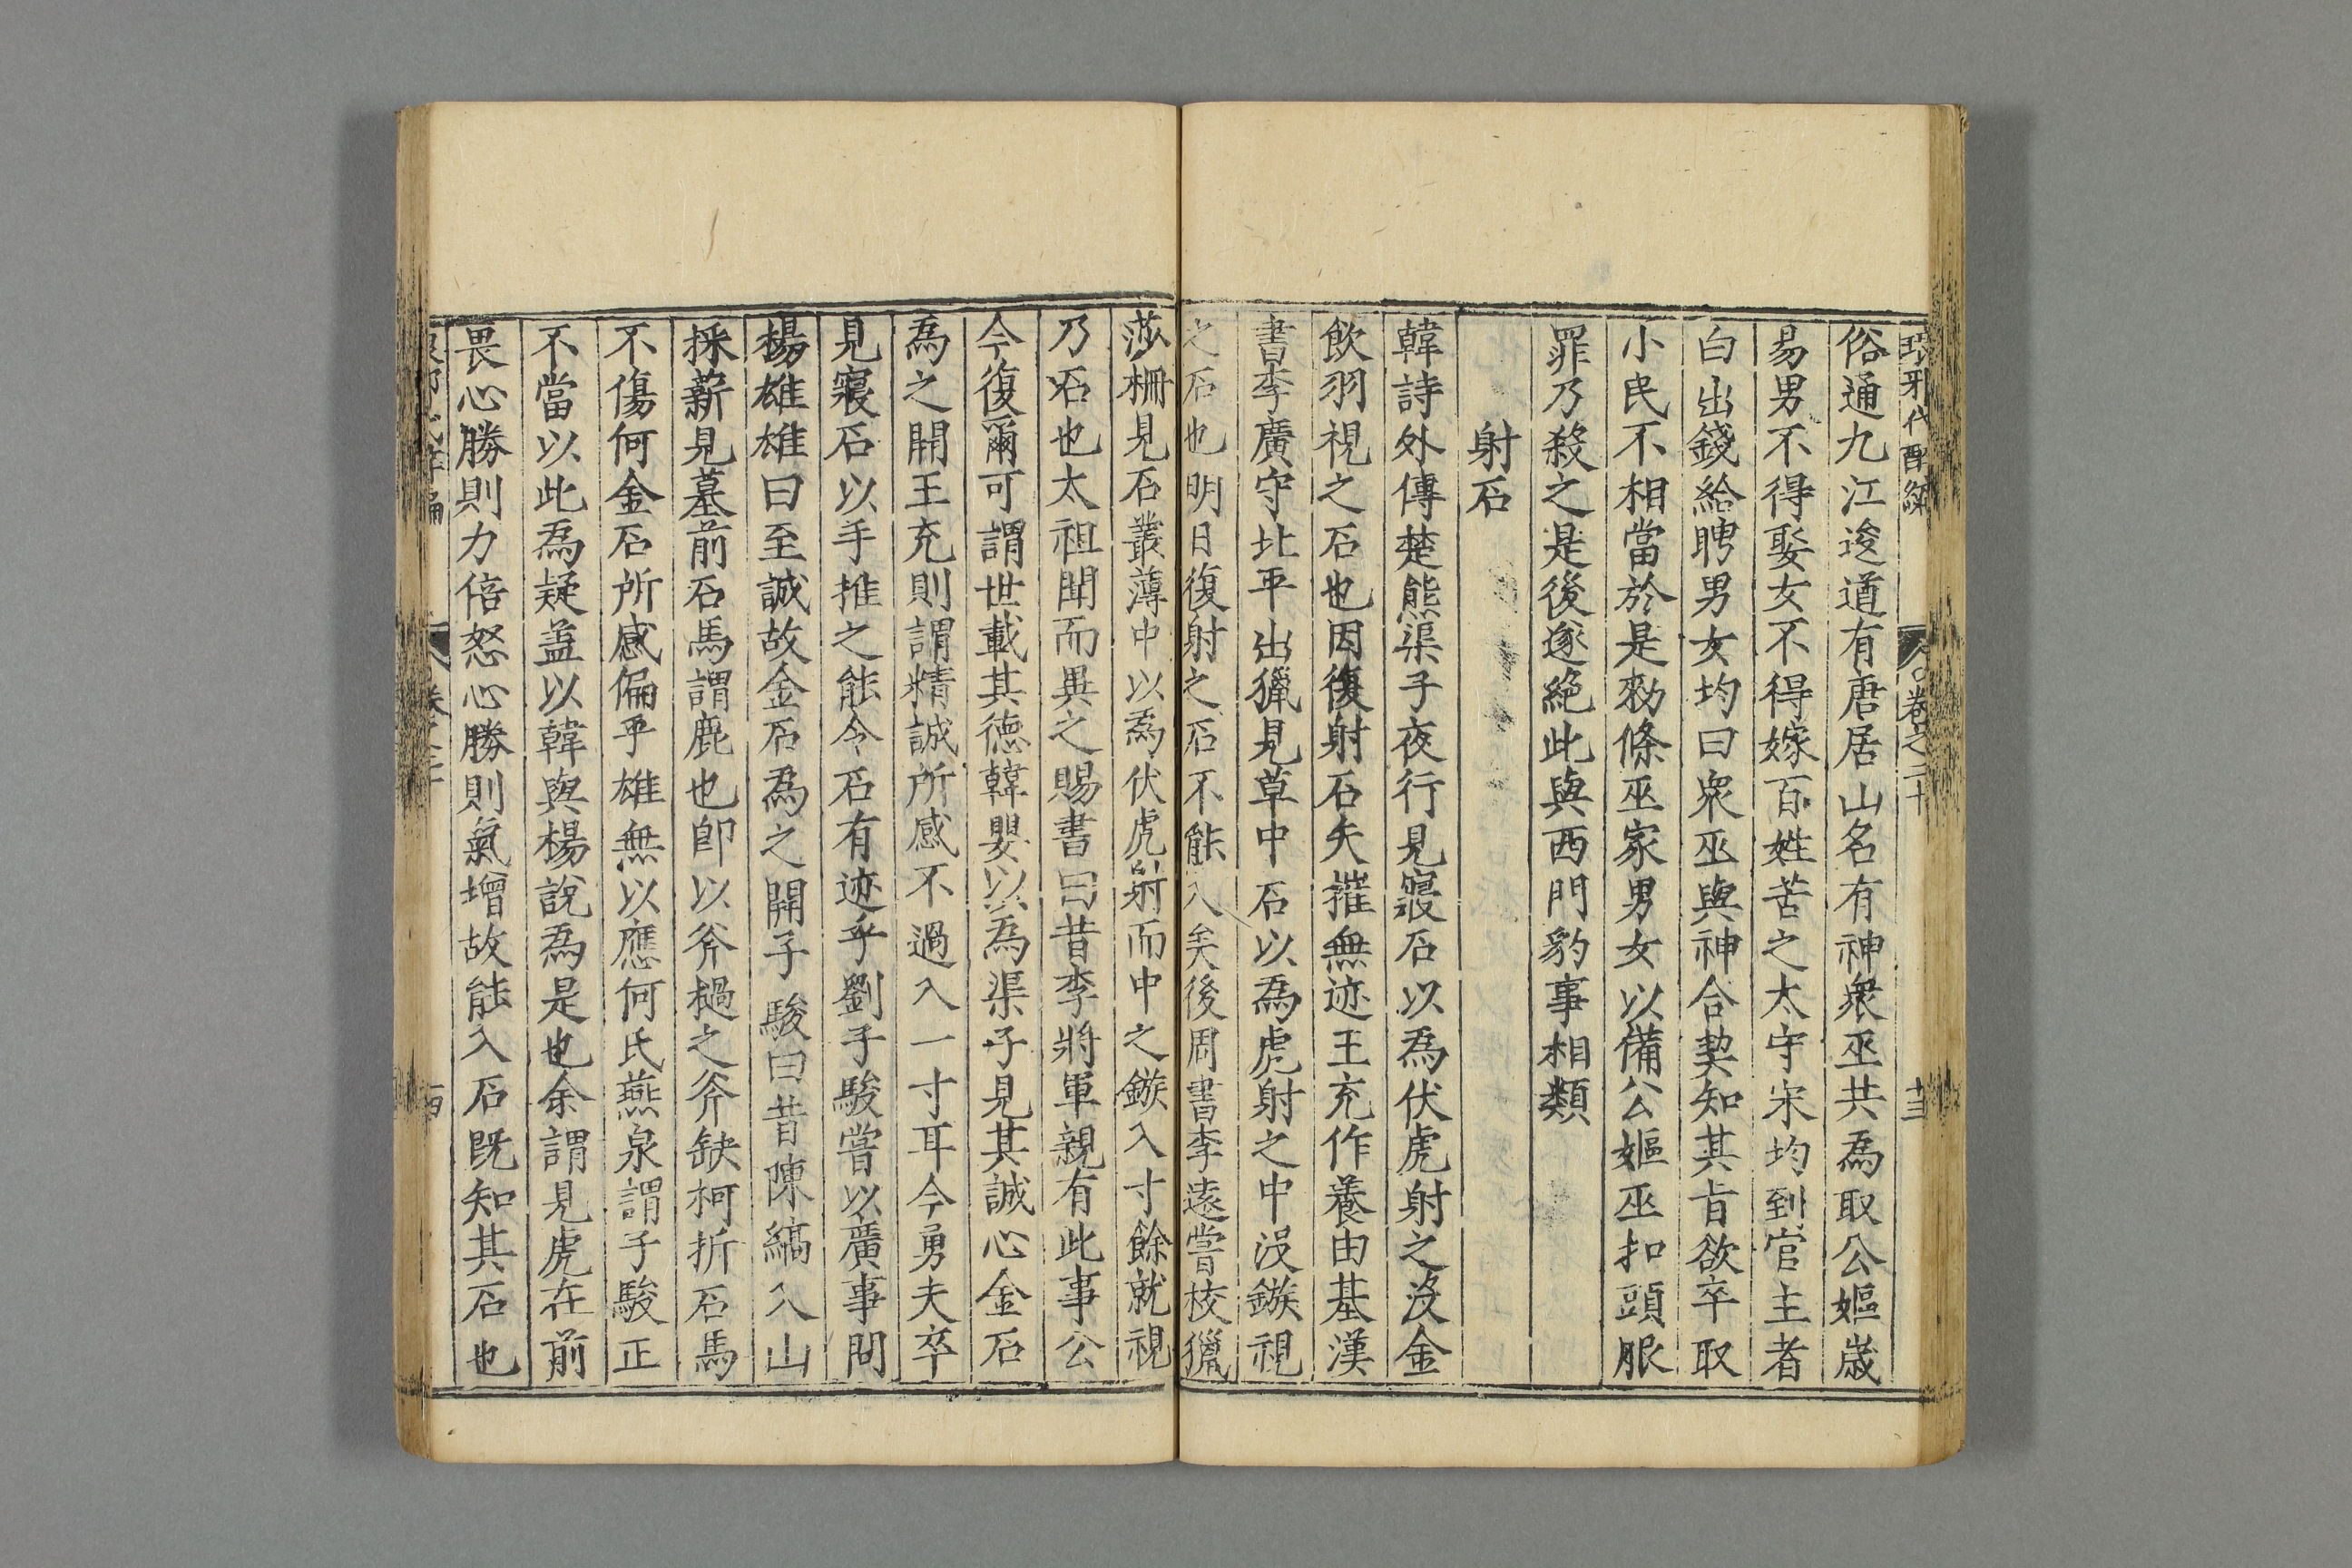 琅邪代醉編 卷之二十 十三
俗通九江逡遒有唐居山名有神衆巫共為取公嫗歲
易男不得娶女不得嫁百姓苦之太守宋均到官主者
白出錢給聘男女均曰衆巫與神合契知其旨欲卒取
小民不相當於是勑條巫家男女以備公嫗巫扣頭服
罪乃殺之是後遂絶此與西門豹事相類
射石
韓詩外傳楚熊渠子夜行見寢石以為伏虎射之沒金
飲羽視之石也因復射石矢摧無迹王充作養由基漢
書李廣守北平出獵見草中石以為虎射之中沒鏃視
之石也明日復射之石不能入矣後周書李遠嘗校獵
莎柵見石叢薄中以為伏虎射而中之鏃入寸餘就視
乃石也太祖聞而異之賜書曰昔李將軍親有此事公
今復爾可謂世載其德韓嬰以為渠子見其誠心金石
為之開王充則謂精誠所感不過入一寸耳今勇夫卒
見寢石以手推之能令石有迹乎劉子駿嘗以廣事問
楊雄雄曰至誠故金石為之開子駿曰昔陳縞入山
採薪見墓前石馬謂鹿也卽以斧檛之斧缺柯折石馬
不傷何金石所感偏乎雄無以應何氏燕泉謂子駿正
不當以此為疑盖以韓與楊說為是也余謂見虎在前
畏心勝則力倍怒心勝則氣增故能入石既知其石也